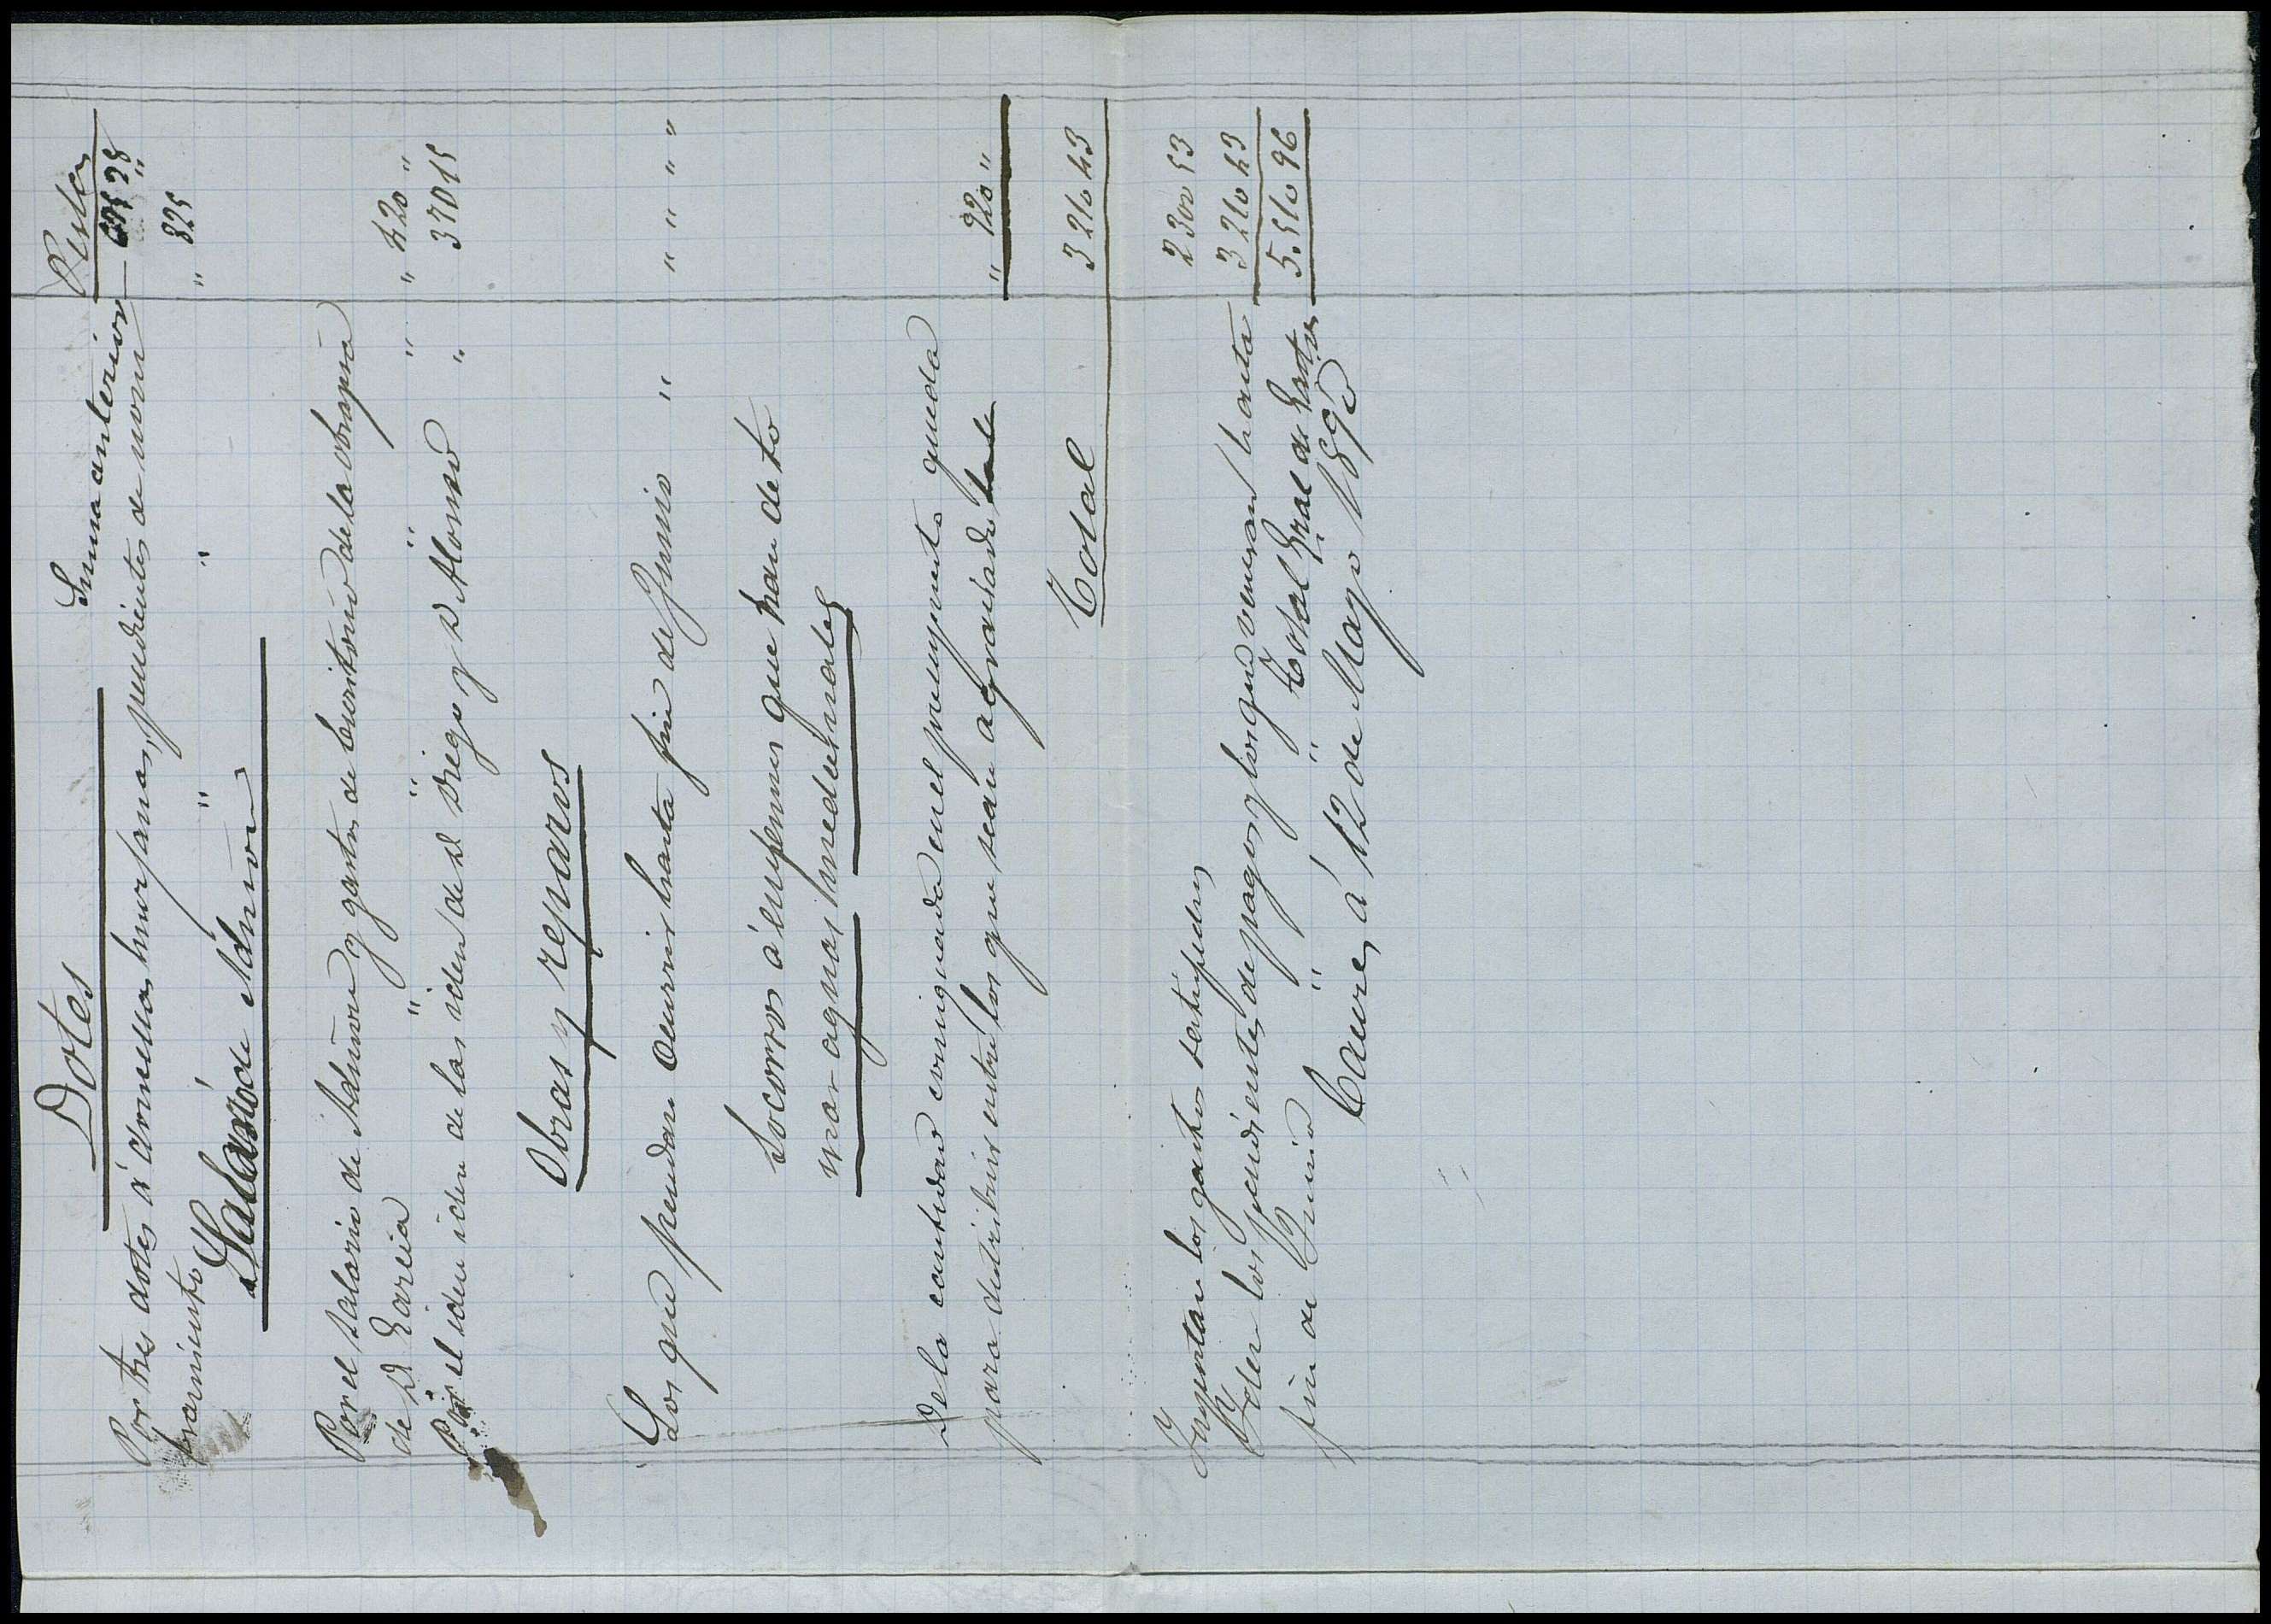 Pesetas
Suma anterior 675 28
Dotes
Por tres dotes á doncellas huerfanas, pendientes de nom
bramiento " " " 825 "
Salario de Admon
Por el salario de Admon y gastos de Escritorio de la obrapia
de D. García " " " " " 420 "
Por el iden iden de las iden de D. Diego y D. Alonso " 370 15
Obras y reparos
Los que puedan ocurrir hasta fin de Junio " " " " "
Socorros á enfermos que han de to
mar aguas medicinales
De la cantidad consignada en el presupuesto queda
para distribuir entre los que sean agraciados " 920 "
Total 3210 43
Importan los gastos satisfechos 2300 53
Iden los pendientes de pago y los que venceran hasta
fin de Junio " " 3210 43
Total Gral de Gastos 5.510 96
Caceres á 12 de Mayo 1890